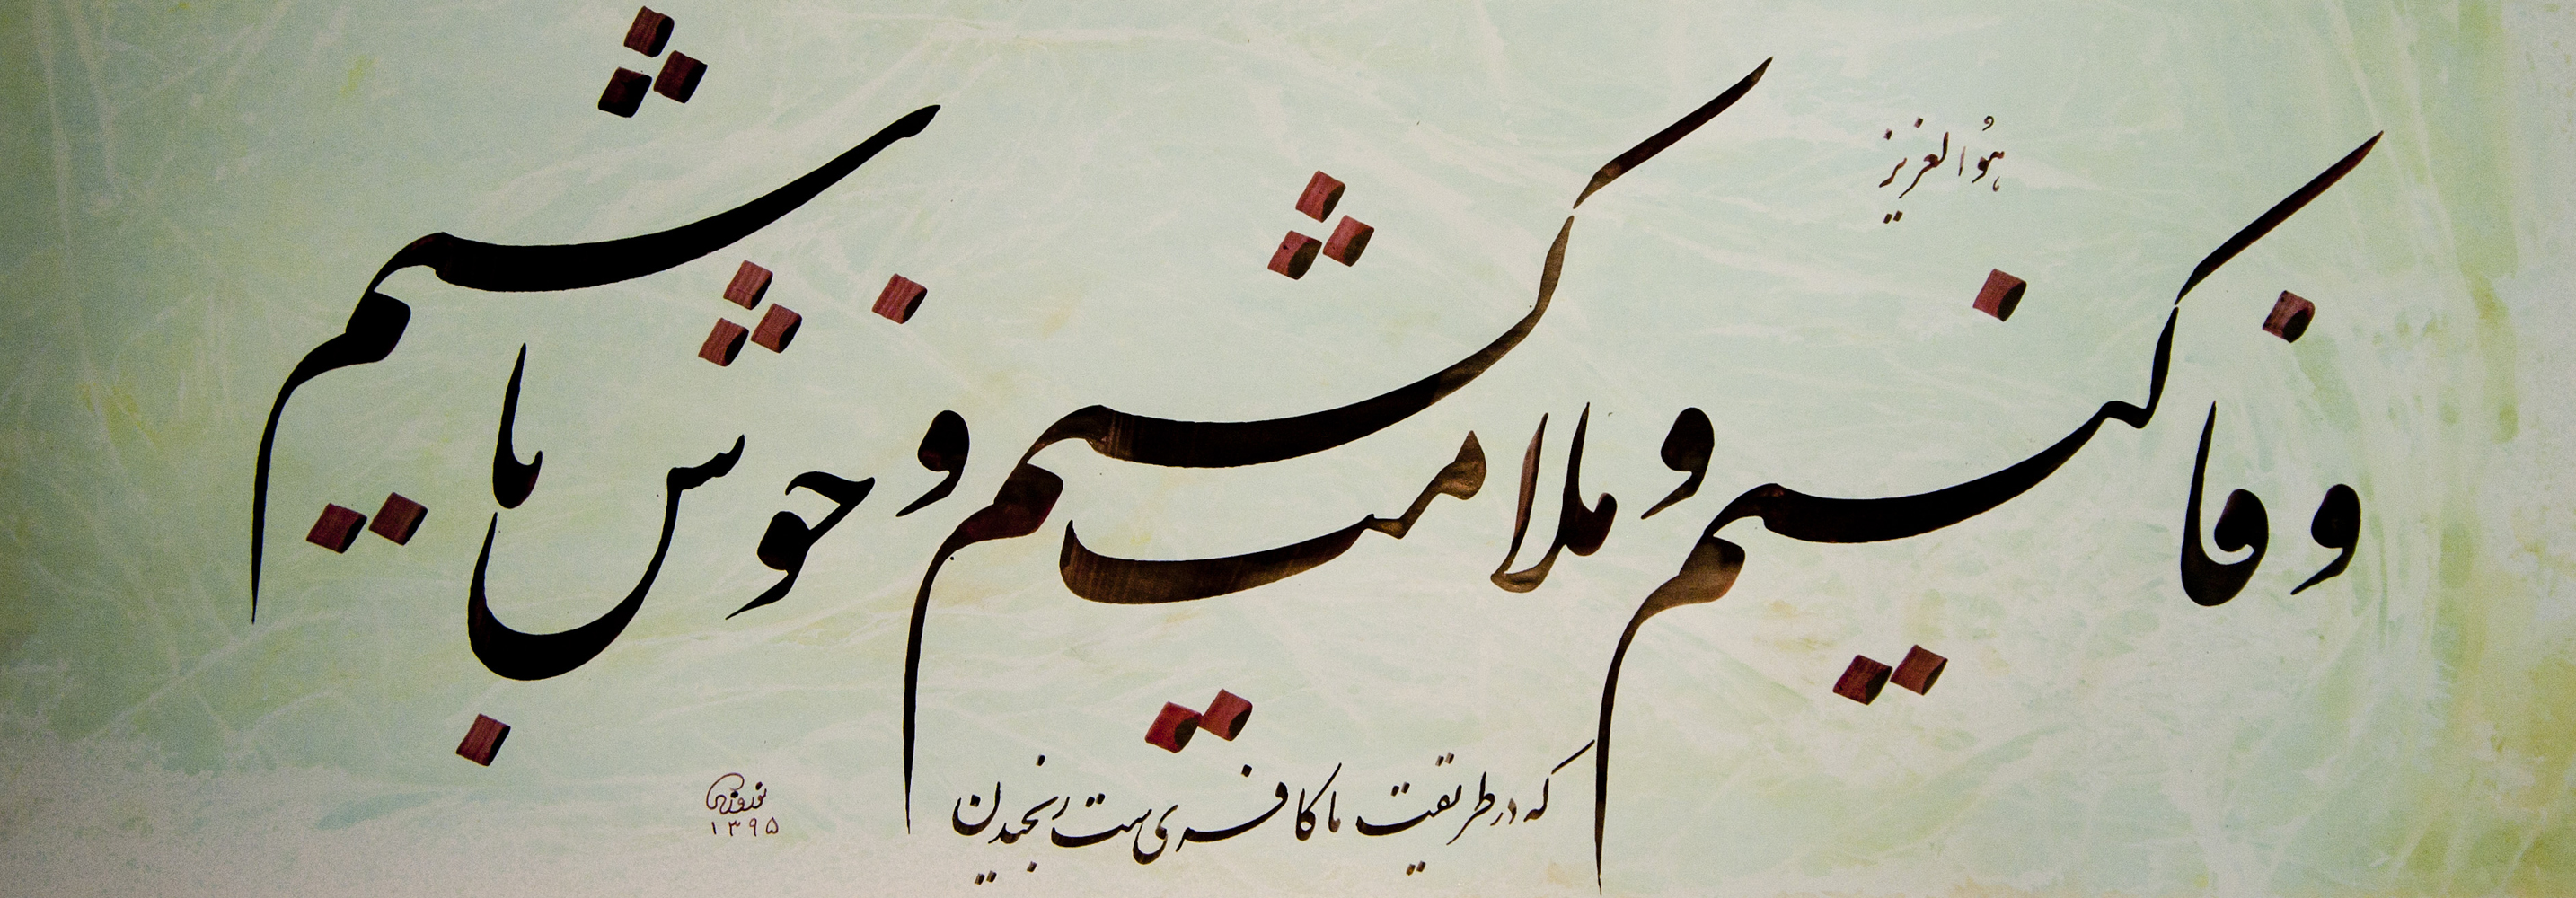 هُوالعزیز
وفا کنیم و ملامت کشیم و خوش باشیم
که در طریقت ما کافریست رنجیدن
نوروزی
۱۳۹۵